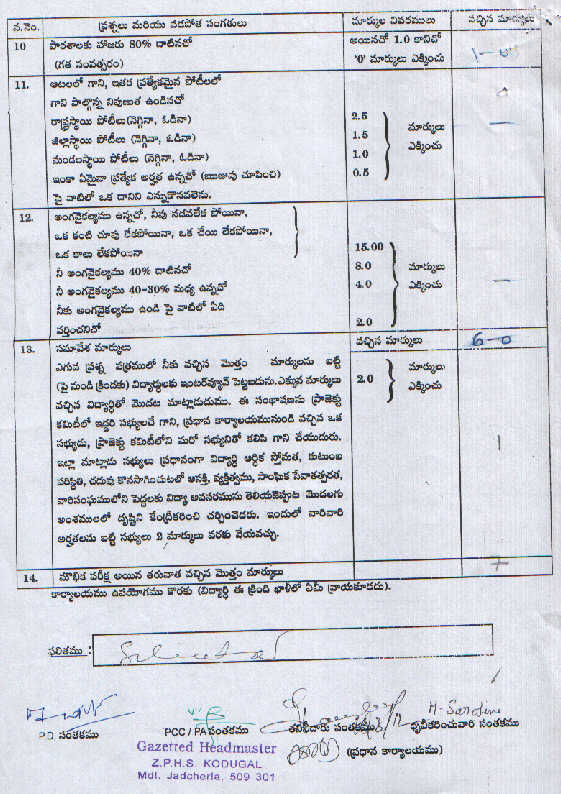 వ.నెం. ప్రశ్నలు మరియు వడపోత సంగతులు మార్కుల వివరములు వచ్చిన మార్కులు
10 పాఠశాలకు హాజరు 80% దాటినచో అయినచో 1.0 కానిచో
(గత సంవత్సరం) '0' మార్కులు ఎక్కించు
11. ఆటలలో గాని, ఇతర ప్రత్యేకమైన పోటీలలో
గాని పాల్గొన్న నిపుణత ఉండినచో
రాష్ట్రస్థాయి పోటీలు(నెగ్గినా, ఓడినా) 2.5 మార్కులు
జిల్లాస్థాయి పోటీలు (నెగ్గినా, ఓడినా) 1.5 ఎక్కించు
మండలస్థాయి పోటీలు (నెగ్గినా, ఓడినా) 1.0
ఇంకా ఏమైనా ప్రత్యేక అర్హత ఉన్నచో (ఋజువు చూపించి) 0.5
పై వాటిలో ఒక దానిని ఎన్నుకొనవలెను.
12. అంగవైకల్యము ఉన్నచో, నీవు నడవలేక పోయినా,
ఒక కంటి చూపు లేకపోయినా, ఒక చేయి లేకపోయినా,
ఒక కాలు లేకపోయినా 15.00
నీ అంగవైకల్యము 40% దాటినచో 8.0 మార్కులు
నీ అంగవైకల్యము 40-30% మధ్య ఉన్నచో 4.0 ఎక్కించు
నీకు అంగవైకల్యము ఉండి పై వాటిలో ఏది
వర్తించనిచో 2.0
13. సమావేశ మార్కులు వచ్చిన మార్కులు 6-0
ఎగువ ప్రశ్న పత్రములో నీకు వచ్చిన మొత్తం మార్కులను బట్టి మార్కులు
(పై నుండి క్రిందకు) విద్యార్థులకు ఇంటర్వ్యూన్ పెట్టబడును.ఎక్కువ మార్కులు 2.0 ఎక్కించు
వచ్చిన విద్యార్థితో మొదట మాట్లాడుదుము. ఈ సంభాషణను ప్రాజెక్టు
కమిటీలో ఇద్దరి సభ్యులచే గాని, ప్రధాన కార్యాలయమునుండి వచ్చిన ఒక
సభ్యుడు, ప్రాజెక్టు కమిటీలోని మరో సభ్యునితో కలిపి గాని చేయుదురు.
ఇట్లా మాట్లాడు సభ్యులు ప్రధానంగా విద్యార్థి ఆర్థిక స్తోమత, కుటుంబ
పరిస్థితి, చదువు కొనసాగించుటలో ఆసక్తి, వ్యక్తిత్వము, సాంఘిక సేవాతత్పరత,
వారిసంఘములోని పెద్దలకు విద్యా అవసరమును తెలియజెప్పుట మొదలగు
అంశములలో దృష్టిని కేంద్రీకరించి చర్చించెదరు. ఇందులో వారివారి
అర్హతలను బట్టి సభ్యులు 2 మార్కులు వరకు వేయవచ్చు.
14. మౌఖిక పరీక్ష అయిన తరువాత వచ్చిన మొత్తం మార్కులు 7
కార్యాలయము ఉపయోగము కొరకు (విద్యార్థి ఈ క్రింది ఖాళీలో ఏమీ వ్రాయకూడదు).
ఫలితము :
M. Sarojini
P.D సంతకము PCC / PA సంతకము తనిఖీదారు సంతకము ధృవీకరించువారి సంతకము
(ప్రధాన కార్యాలయము)
Gazetred Headmaster
Z.P.H.S. KODUGAL
Mdl. Jadcherla, 509 301